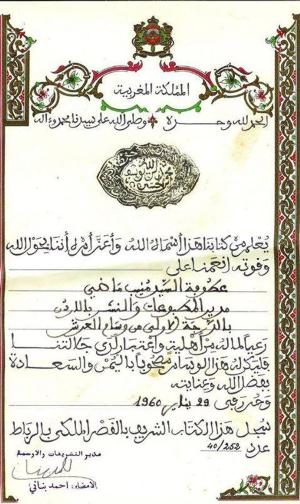 المملكة المغربية
الحمد لله وحده وصلى الله على سيدنا محمد وءاله
يعلم من كتابنا هذا أسماه الله وأعز أمره أننا بحول الله
وقوته أنعمنا على
عطوفة السيد منيب ماضي
مدير المطبوعات والنشر بالاردن
بالدرجة الاولى من وسام العرش
رعيا لماله من أهلية واعتبار لدى جلالتنا
فليتقلد هذا الوسام مصحوبا باليمن والسعادة
بفضل الله وعنايته
وحرر في 29 يناير 1960
سجل هذا الكتاب الشريف بالقصر الملكي بالرباط
عدد 40/252
مدير التشريفات والاوسمة
الامضاء: احمد بناني